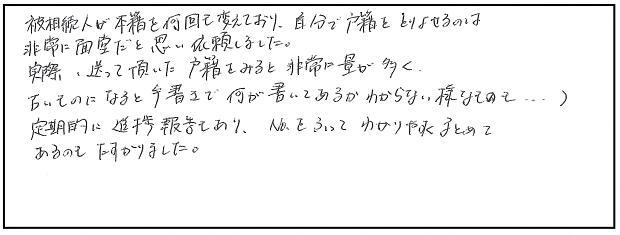 被相続人が本籍を何回も変えており、自分で戸籍をとりよせるのは
非常に面堂だと思い依頼しました。
実際、送って頂いた戸籍をみると非常に量が多く、
古いものになると手書きで何が書いてあるかわからない様なものも…)
定期的に進捗報告もあり、No.をふって わかりやすくまとめて
あるのも たすかりました。